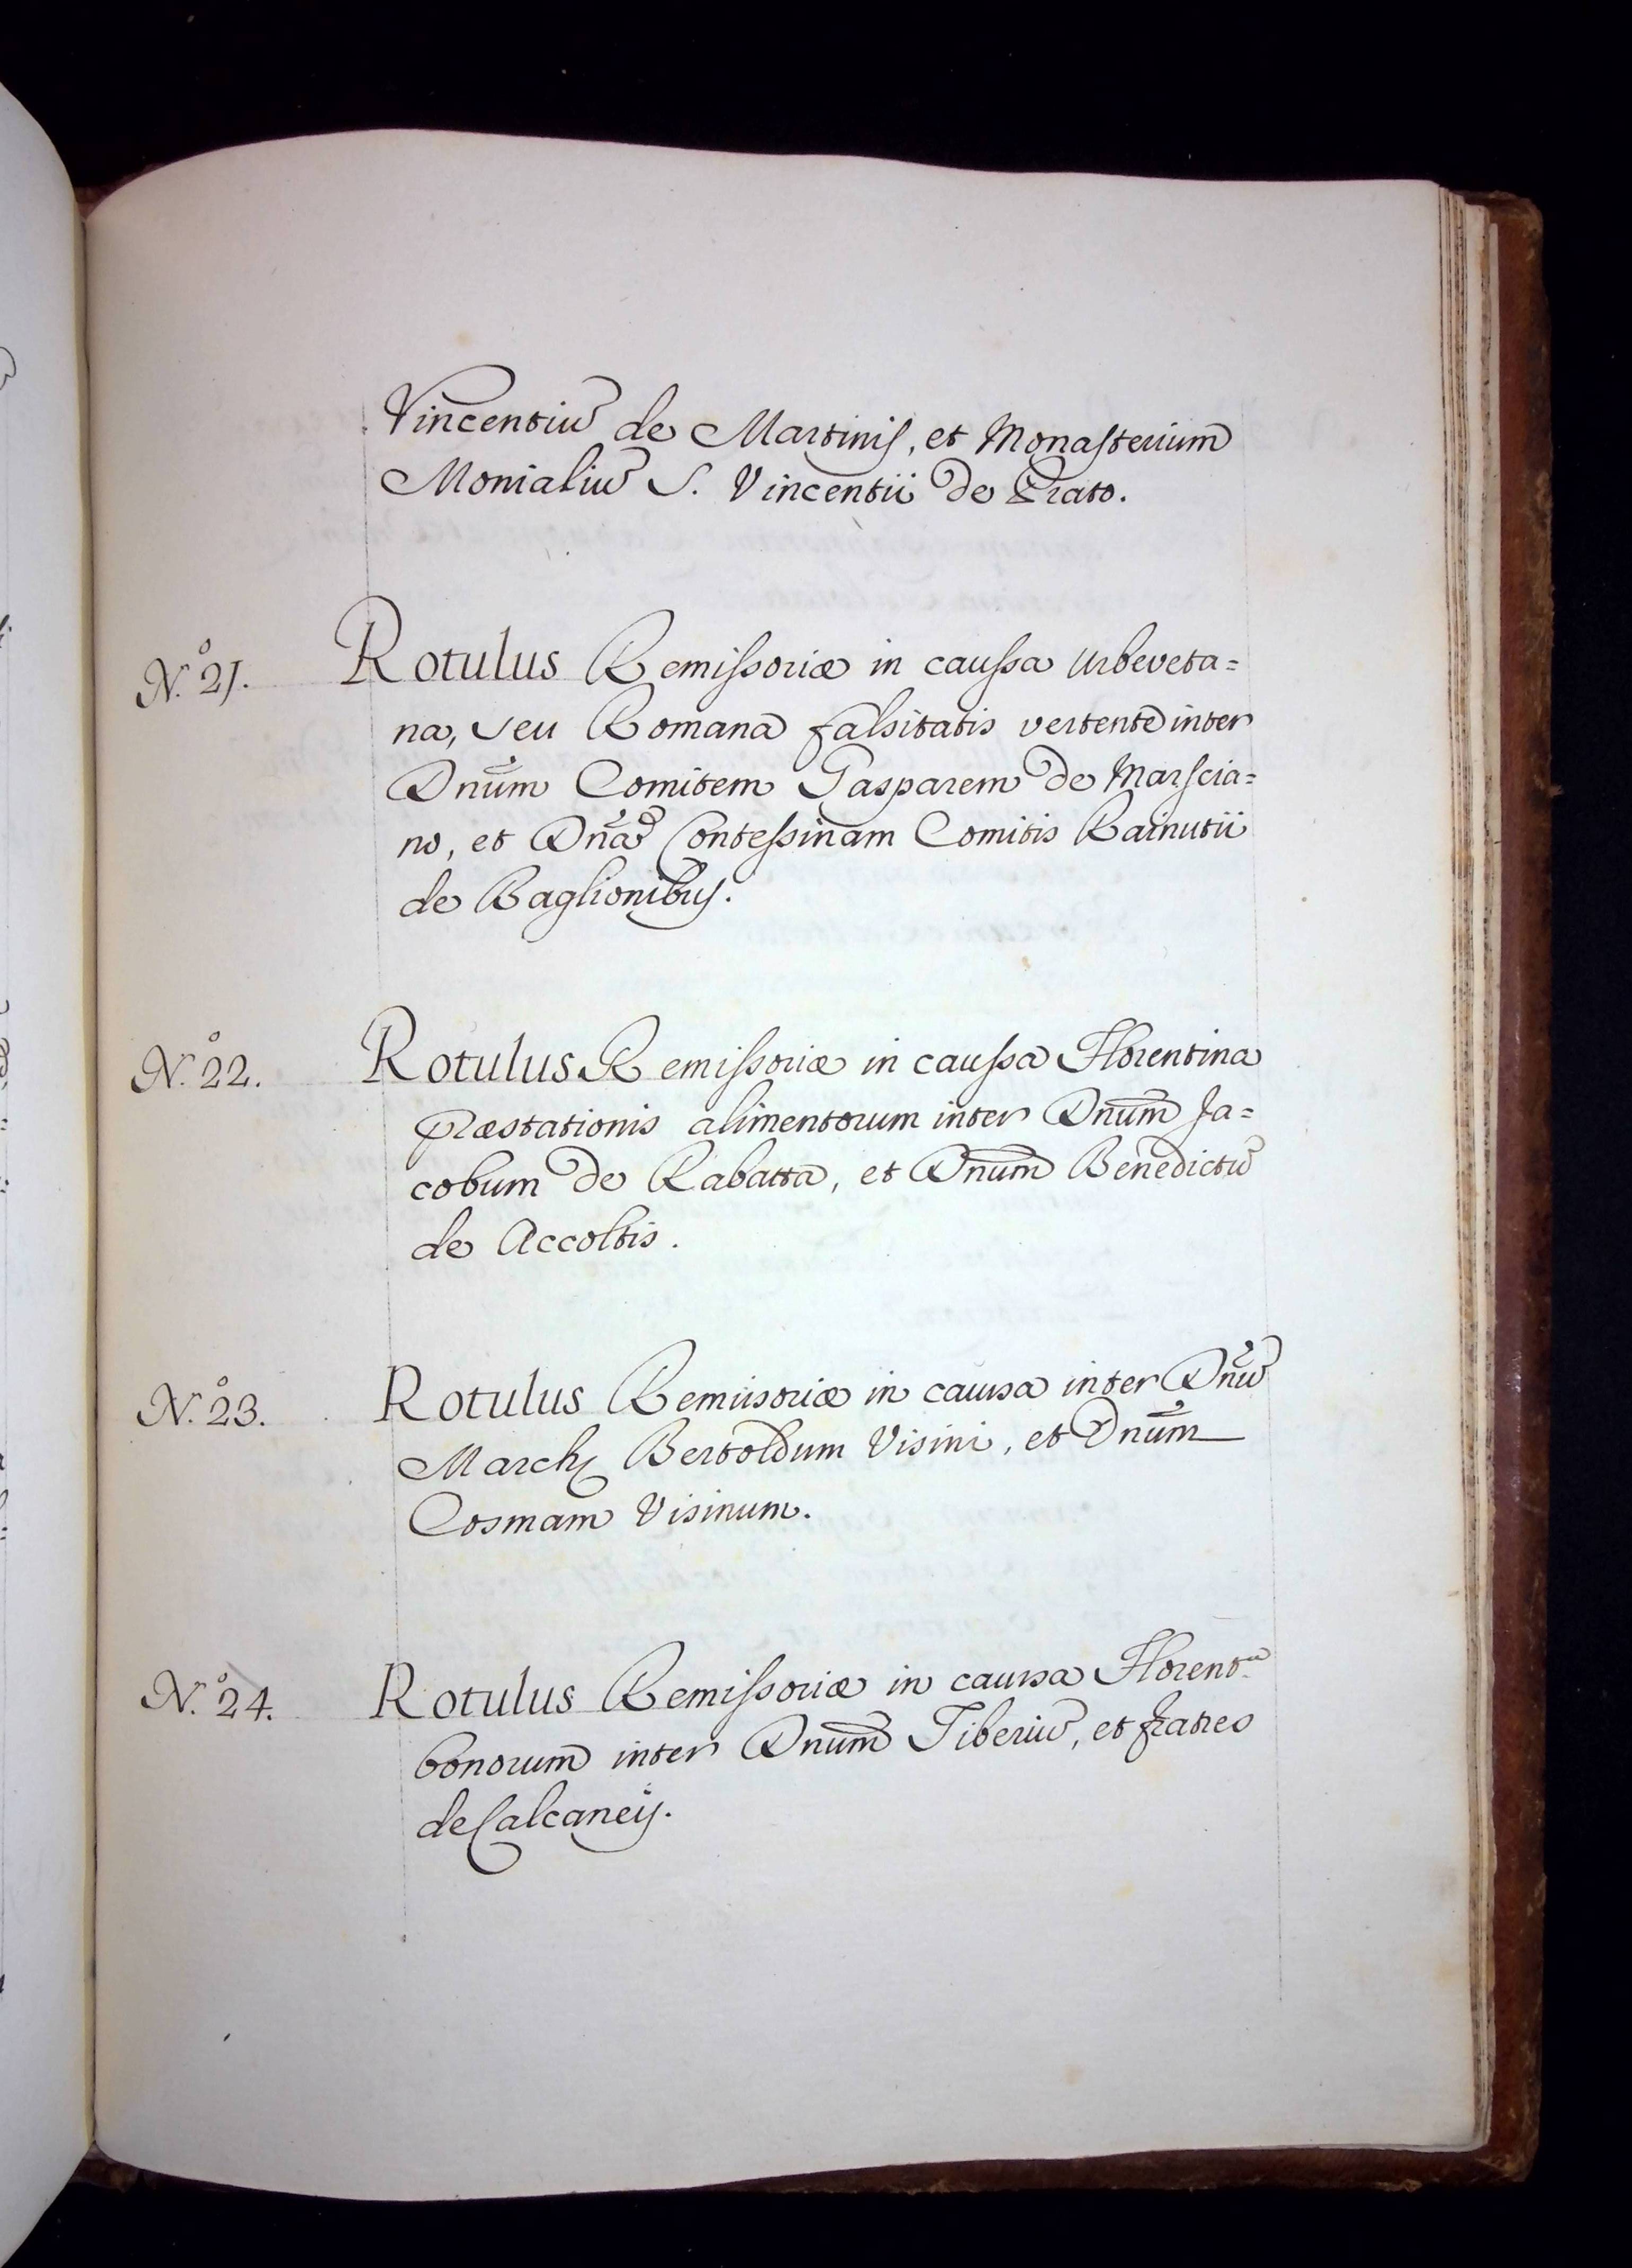 Vincentiũ de Martinis, et Monasterium
Monialiũ S. Vincentii de Prato.
N.º 21. Rotulus Remissoriæ in caussa Urbeveta=
na, seu Romana falsitatis vertente inter
Dnum̃ Comitem Gasparem de Marscia=
no, et Dnãm Contessinam Comitis Rainutii
de Baglionibus.
N.º 22. Rotulus Remissoriæ in caussa Florentina
præstationis alimentorum inter Dnum̃ Ja=
cobum de Rabatta, et Dnum̃ Benedictũ
de Accoltis.
N.º 23. Rotulus Remissoriæ in caussa inter Dnũ
March. Bertoldum Visini, et Dnum̃
Cosmam Visinum.
N.º 24. Rotulus Remissoriæ in caussa Florent.ª
bonorum inter Dnum̃ Tiberiũ, et fratres
de Calcaneis.